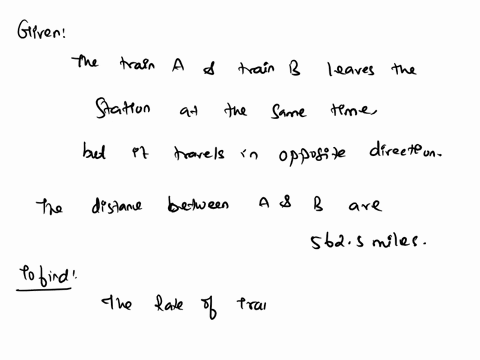 Given:
The train A & train B leaves the
Station at the same time,
but it travels in opposite direction.
The distane between A & B are
562.5 miles.
To find:
The Rate of Trai